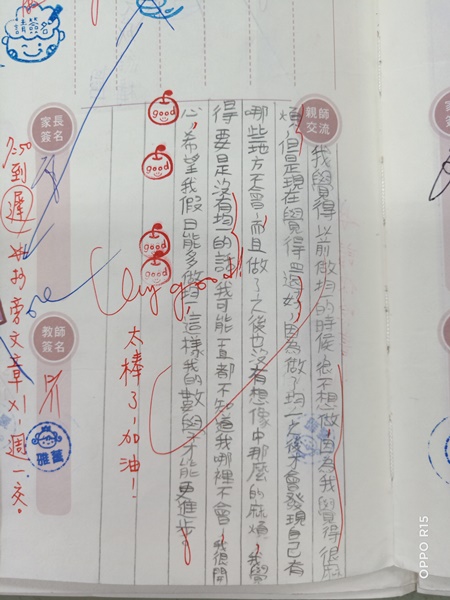 請簽名
親師交流
我覺得以前做均一的時候很不想做,因為我覺得很麻
煩,但是現在覺得還好,因為做了均一之後才會發現自己有
哪些地方不會,而且做了之後也沒有想像中那麼的麻煩,我覺
得要是沒有均一的話,我可能一直都不知道我哪裡不會,我很開
心,希望我假日能多做均一,這樣我的數學才能更進步。
good
good
good
good
Very good!
太棒了,加油!
家長簽名
教師簽名
雅蕙
7:50到遲
抄旁文章x1,週一交。
OPPO R15